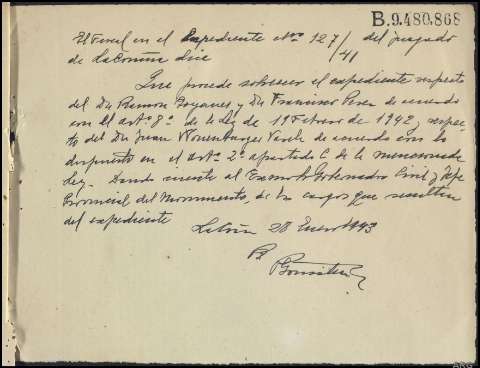 B.9.480.868
El Fiscal en el Expediente nº 127/41 del juzgado
de La Coruña dice
Que procede sobreseer el expediente respecto
del Dr Ramon Goyanes y Dr Francisco Perez de acuerdo
con el artº 8º de la ley de 19 Febrero de 1942, respec-
to del Dr Juan Wonenburger Varela de acuerdo con lo
dispuesto en el artº 2º apartado C de la mencionada
ley. Dando cuenta al Exmo Sr Gobernador Civil y Jefe
Provincial del Movimiento, de los cargos que resultan
del expediente
La Coruña 28 Enero 1943